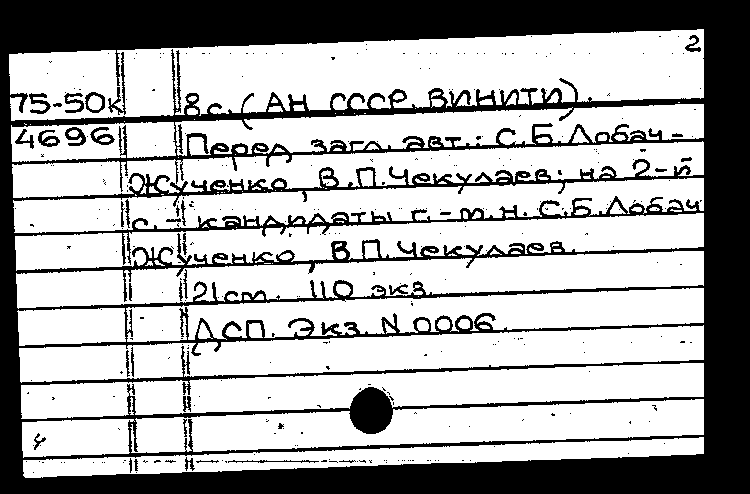 2
75-50к 8 с. (АН СССР. ВИНИТИ).
4696 Перед загл. авт.: С.Б.Лобач-
Жученко, В.П.Чекулаев; на 2-й
с. - кандидаты г.-м.н. С.Б.Лобач
Жученко, В.П.Чекулаев.
21 cm. 110 экз.
ДСП. Экз. N 0006.